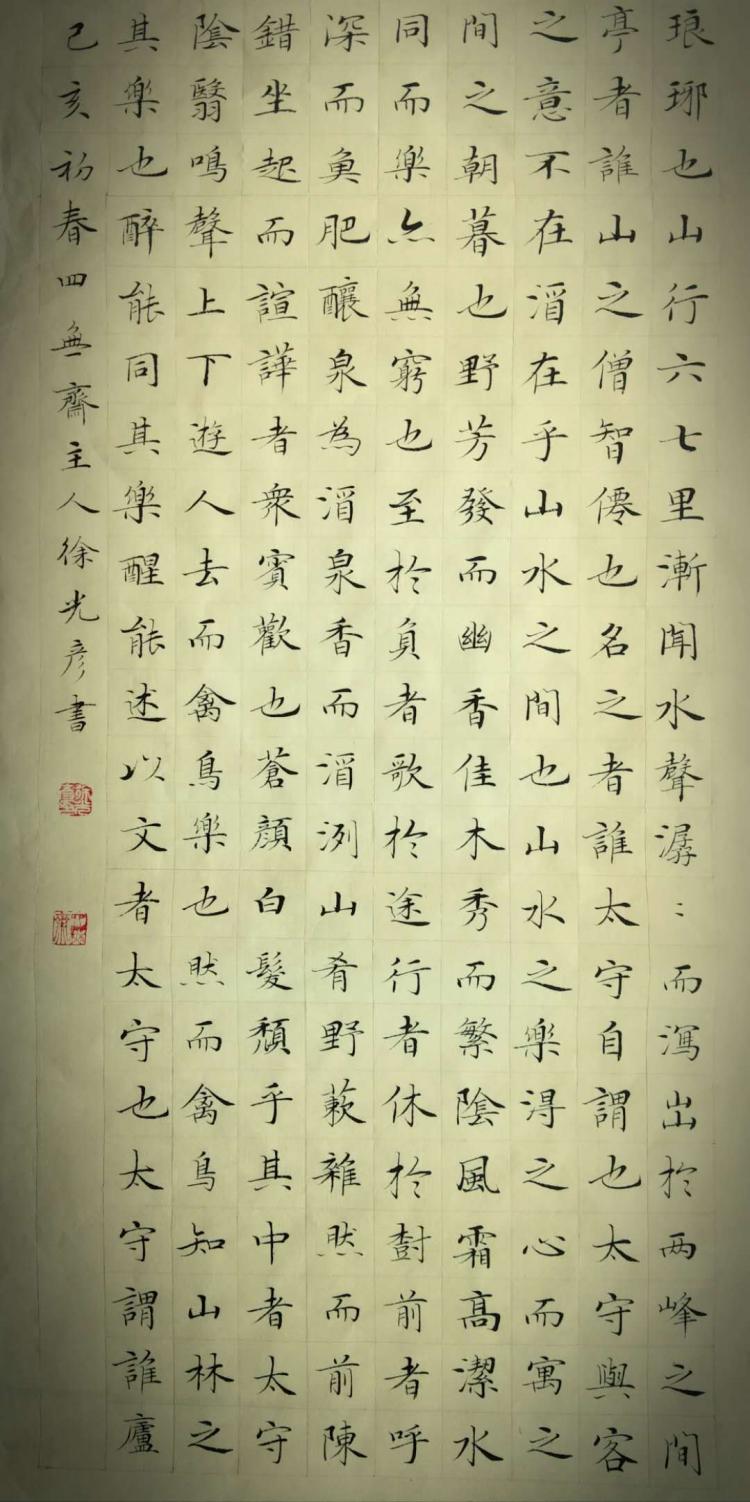 琅琊也山行六七里漸聞水聲潺:而瀉出於两峰之間
亭者誰山之僧智僊也名之者誰太守自謂也太守與客
之意不在酒在乎山水之間也山水之樂得之心而寓之
間之朝暮也野芳發而幽香佳木秀而繁陰風霜高潔水
同而樂亦無窮也至於負者歌於途行者休於樹前者呼
深而魚肥釀泉為酒泉香而酒洌山肴野蔌雜然而前陳
錯坐起而諠譁者衆賓歡也蒼顏白髮頹乎其中者太守
陰翳鳴聲上下遊人去而禽鳥樂也然而禽鳥知山林之
其樂也醉能同其樂醒能述以文者太守也太守謂誰廬
己亥初春四無齋主人徐光彦書